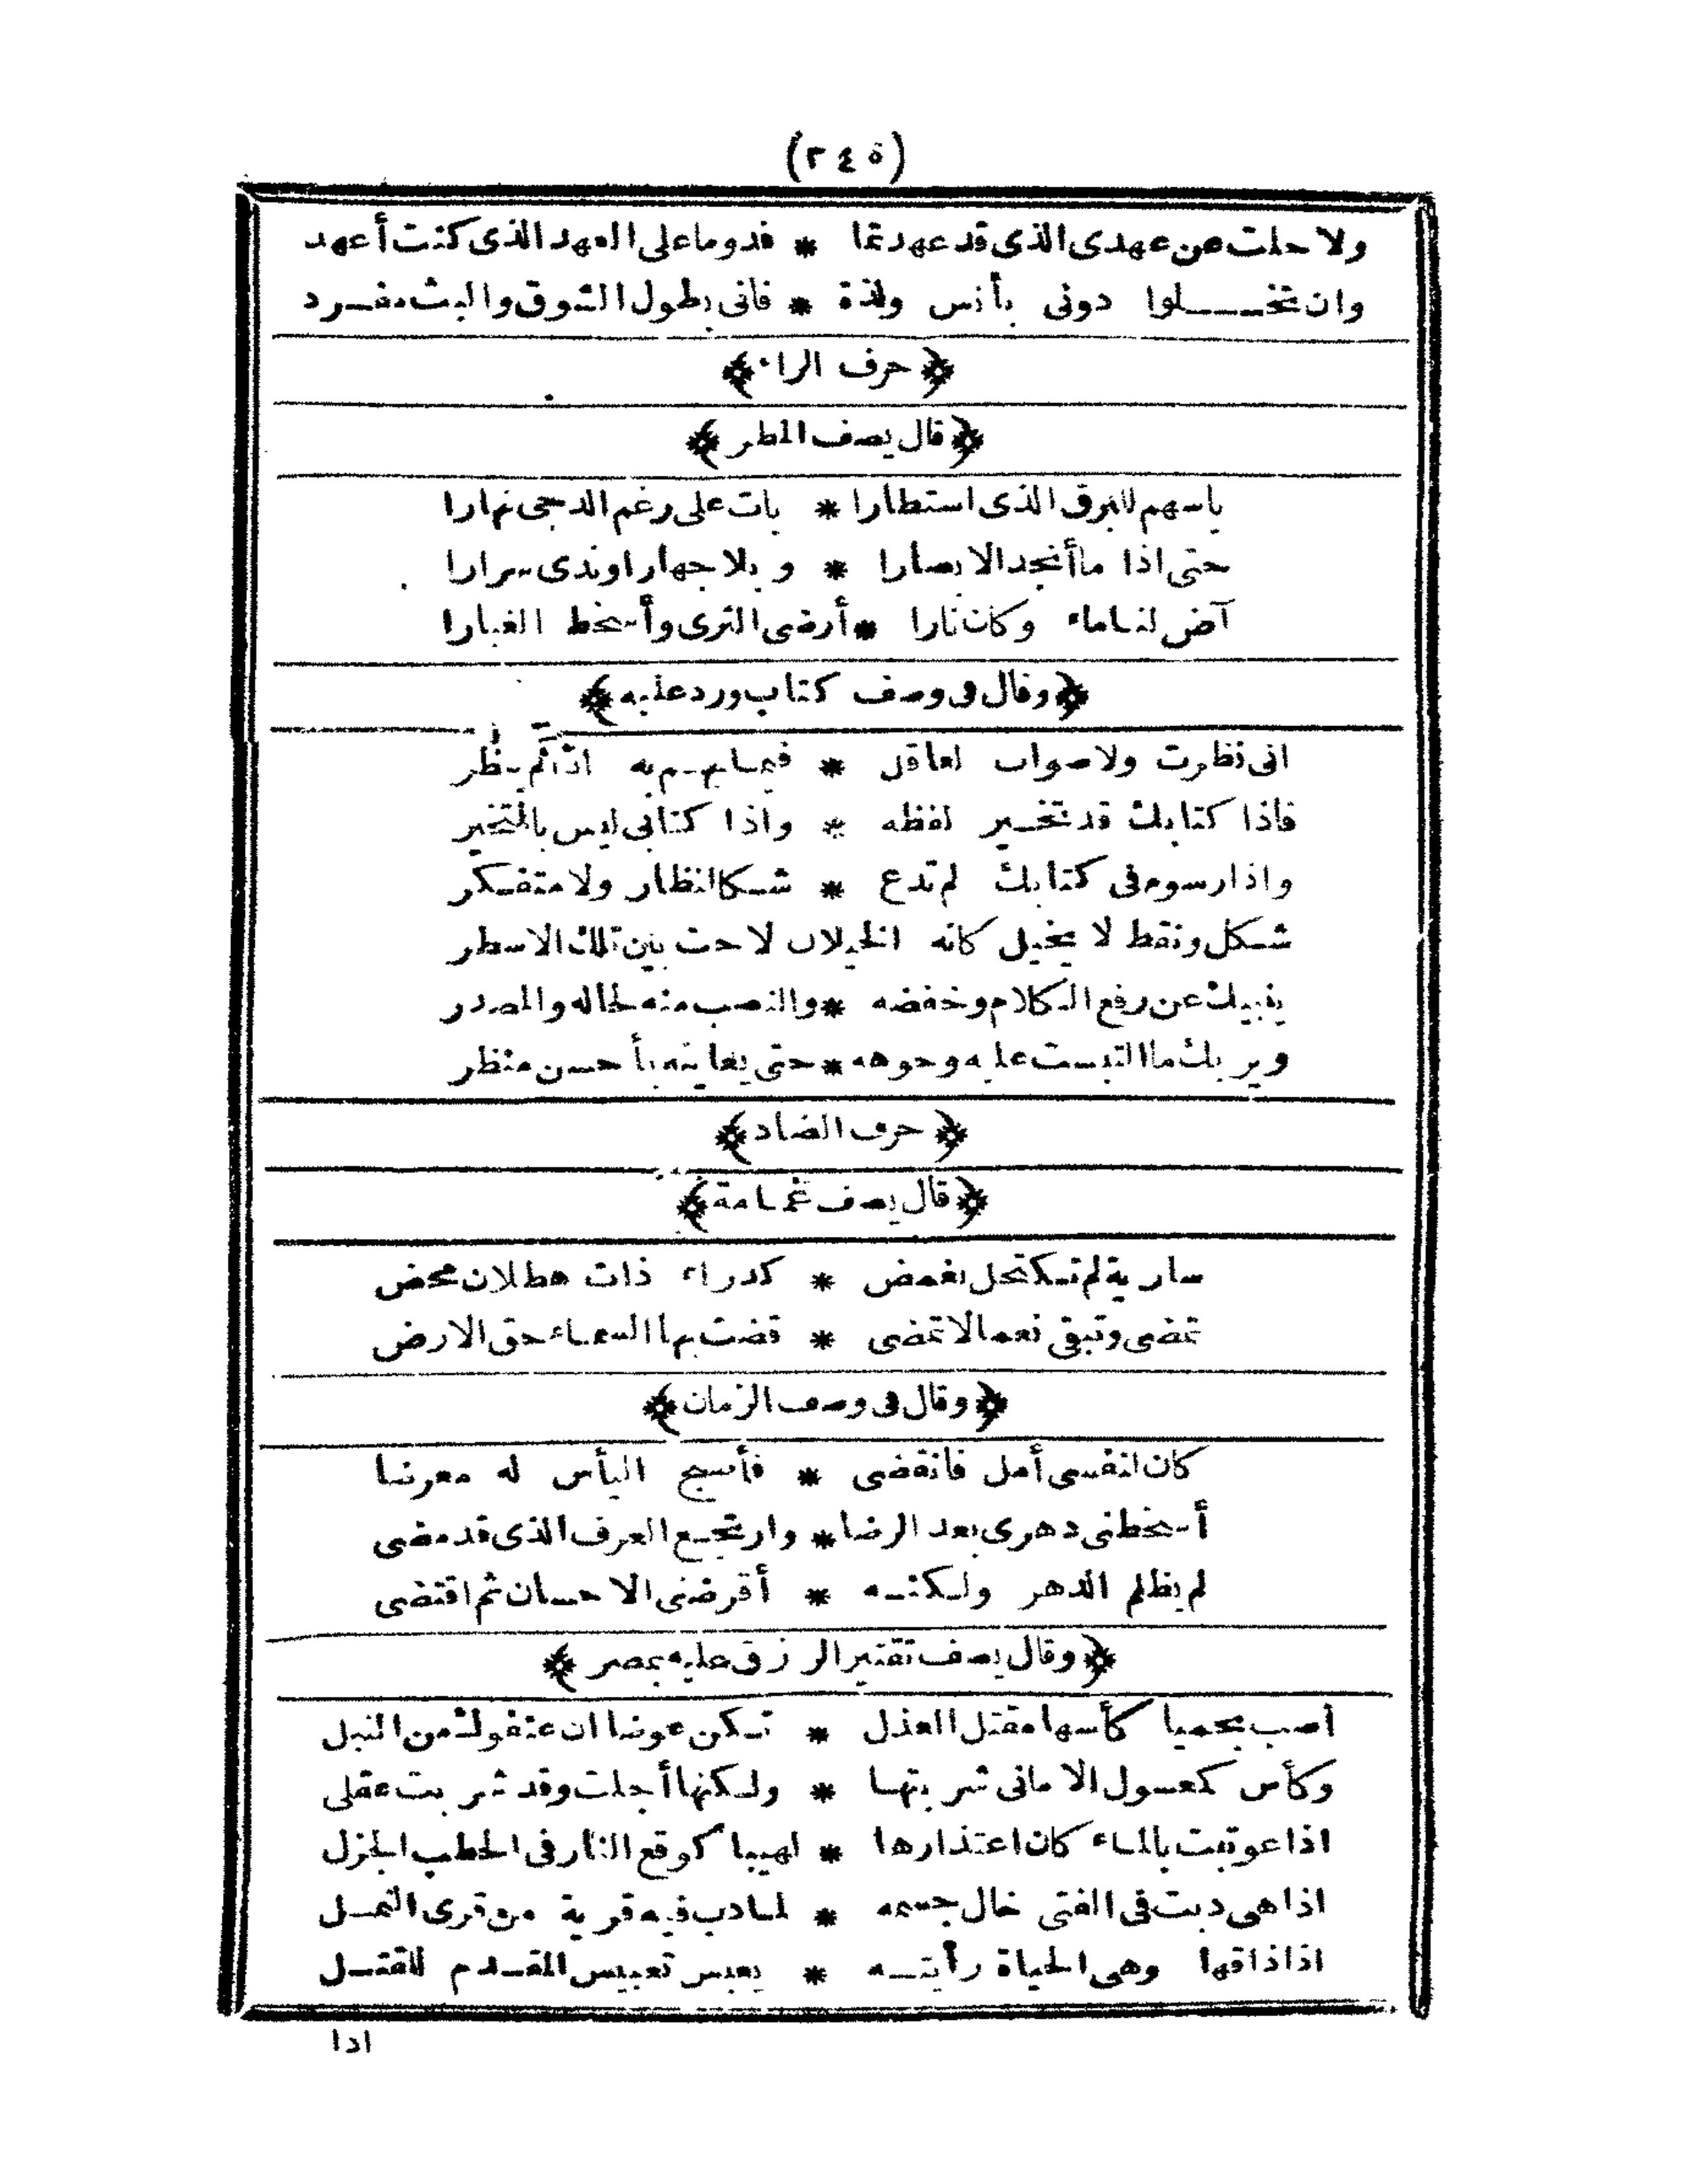 (٢٤٥)
ولا حلت عن عهدى الذى قد عهدتما * فدوما على العهد الذى كنت أعهد
وان تخلوا دونى بأنس ولذة * فانى بطول الشوق والبث مفرد
﴿حرف الراء﴾
﴿قال يصف المطر﴾
ياسهم للبرق الذى استطارا * بات على رغم الدجى نهارا
حتى اذا ما أنجد الابصارا * وبلا جهارا وندى سرارا
آض لنا ماء وكان نارا * أرضى الثرى وأسخط الغبارا
﴿وقال فى وصف كتاب ورد عليه﴾
انى نظرت ولا صواب لعاقل * فيما يهم به اذا لم ينظر
فاذا كتابك قد تخير لفظه * واذا كتابى ليس بالمتخير
واذا رسوم فى كتابك لم تدع * شكا لنظار ولا متفكر
شكل ونقط لا يخيل كانه الخيلان لاحت بين تلك الاسطر
ينبيك عن رفع الكلام وخفضه * والنصب منه لحاله والمصدر
ويريك ما التبست عليه وجوهه * حتى يعاينه بأحسن منظر
﴿حرف الضاد﴾
﴿قال يصف غمامة﴾
سارية لم تكتحل بغمض * كدراء ذات هطلان محض
تمضى وتبقى نعما لا تمضى * قضت بها السماء حق الارض
﴿وقال فى وصف الزمان﴾
كان لنفسى أمل فانقضى * فأصبح اليأس له معرضا
أسخطنى دهرى بعد الرضا * وارتجع العرف الذى قد مضى
لم يظلم الدهر ولكنه * أقرضنى الاحسان ثم اقتضى
﴿وقال يصف تقتير الرزق عليه بمصر﴾
أصب بحميا كأسها مقتل العذل * تكن عوضا ان عنفوك من النبل
وكأس كمعسول الامانى شربتها * ولكنها أجلت وقد شربت عقلى
اذا عوتبت بالماء كان اعتذارها * لهيبا كوقع النار فى الحطب الجزل
اذا هى دبت فى الفتى خال جسمه * لما دب فيه قرية من قرى النمل
اذا ذاقها وهى الحياة رأيته * يعبس تعبيس المقدم للقتل
اذا